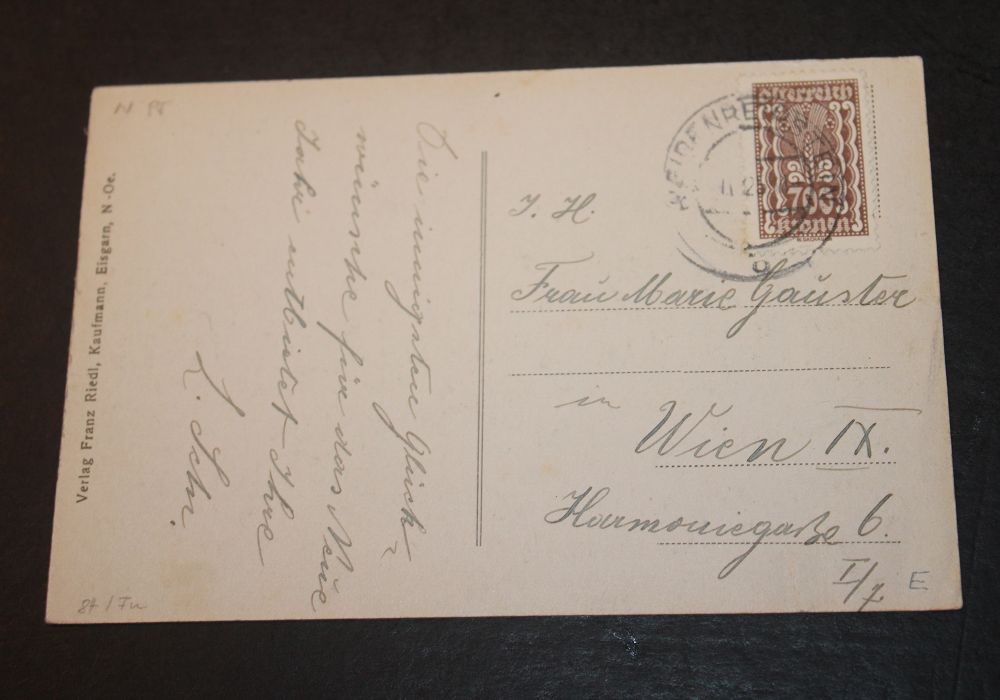 Verlag Franz Riedl, Kaufmann, Eisgarn, N.-Oe.
Die innigsten Glück-
wünsche für das Neue
Jahr entbietet Ihre
L. Schr.
österreich
700
Kronen
I. H.
Frau Marie Gauster
in
Wien IX.
Harmoniegaße 6.
I/7
E
84 / Tu